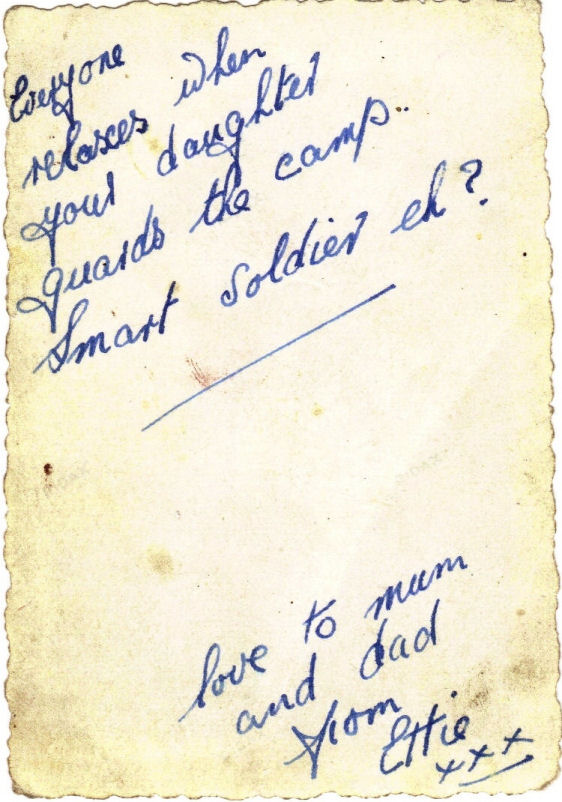 Everyone
relaxes when
your daughter
guards the camp..
Smart soldier eh?
love to mum
and dad
from
Ettie
xxx